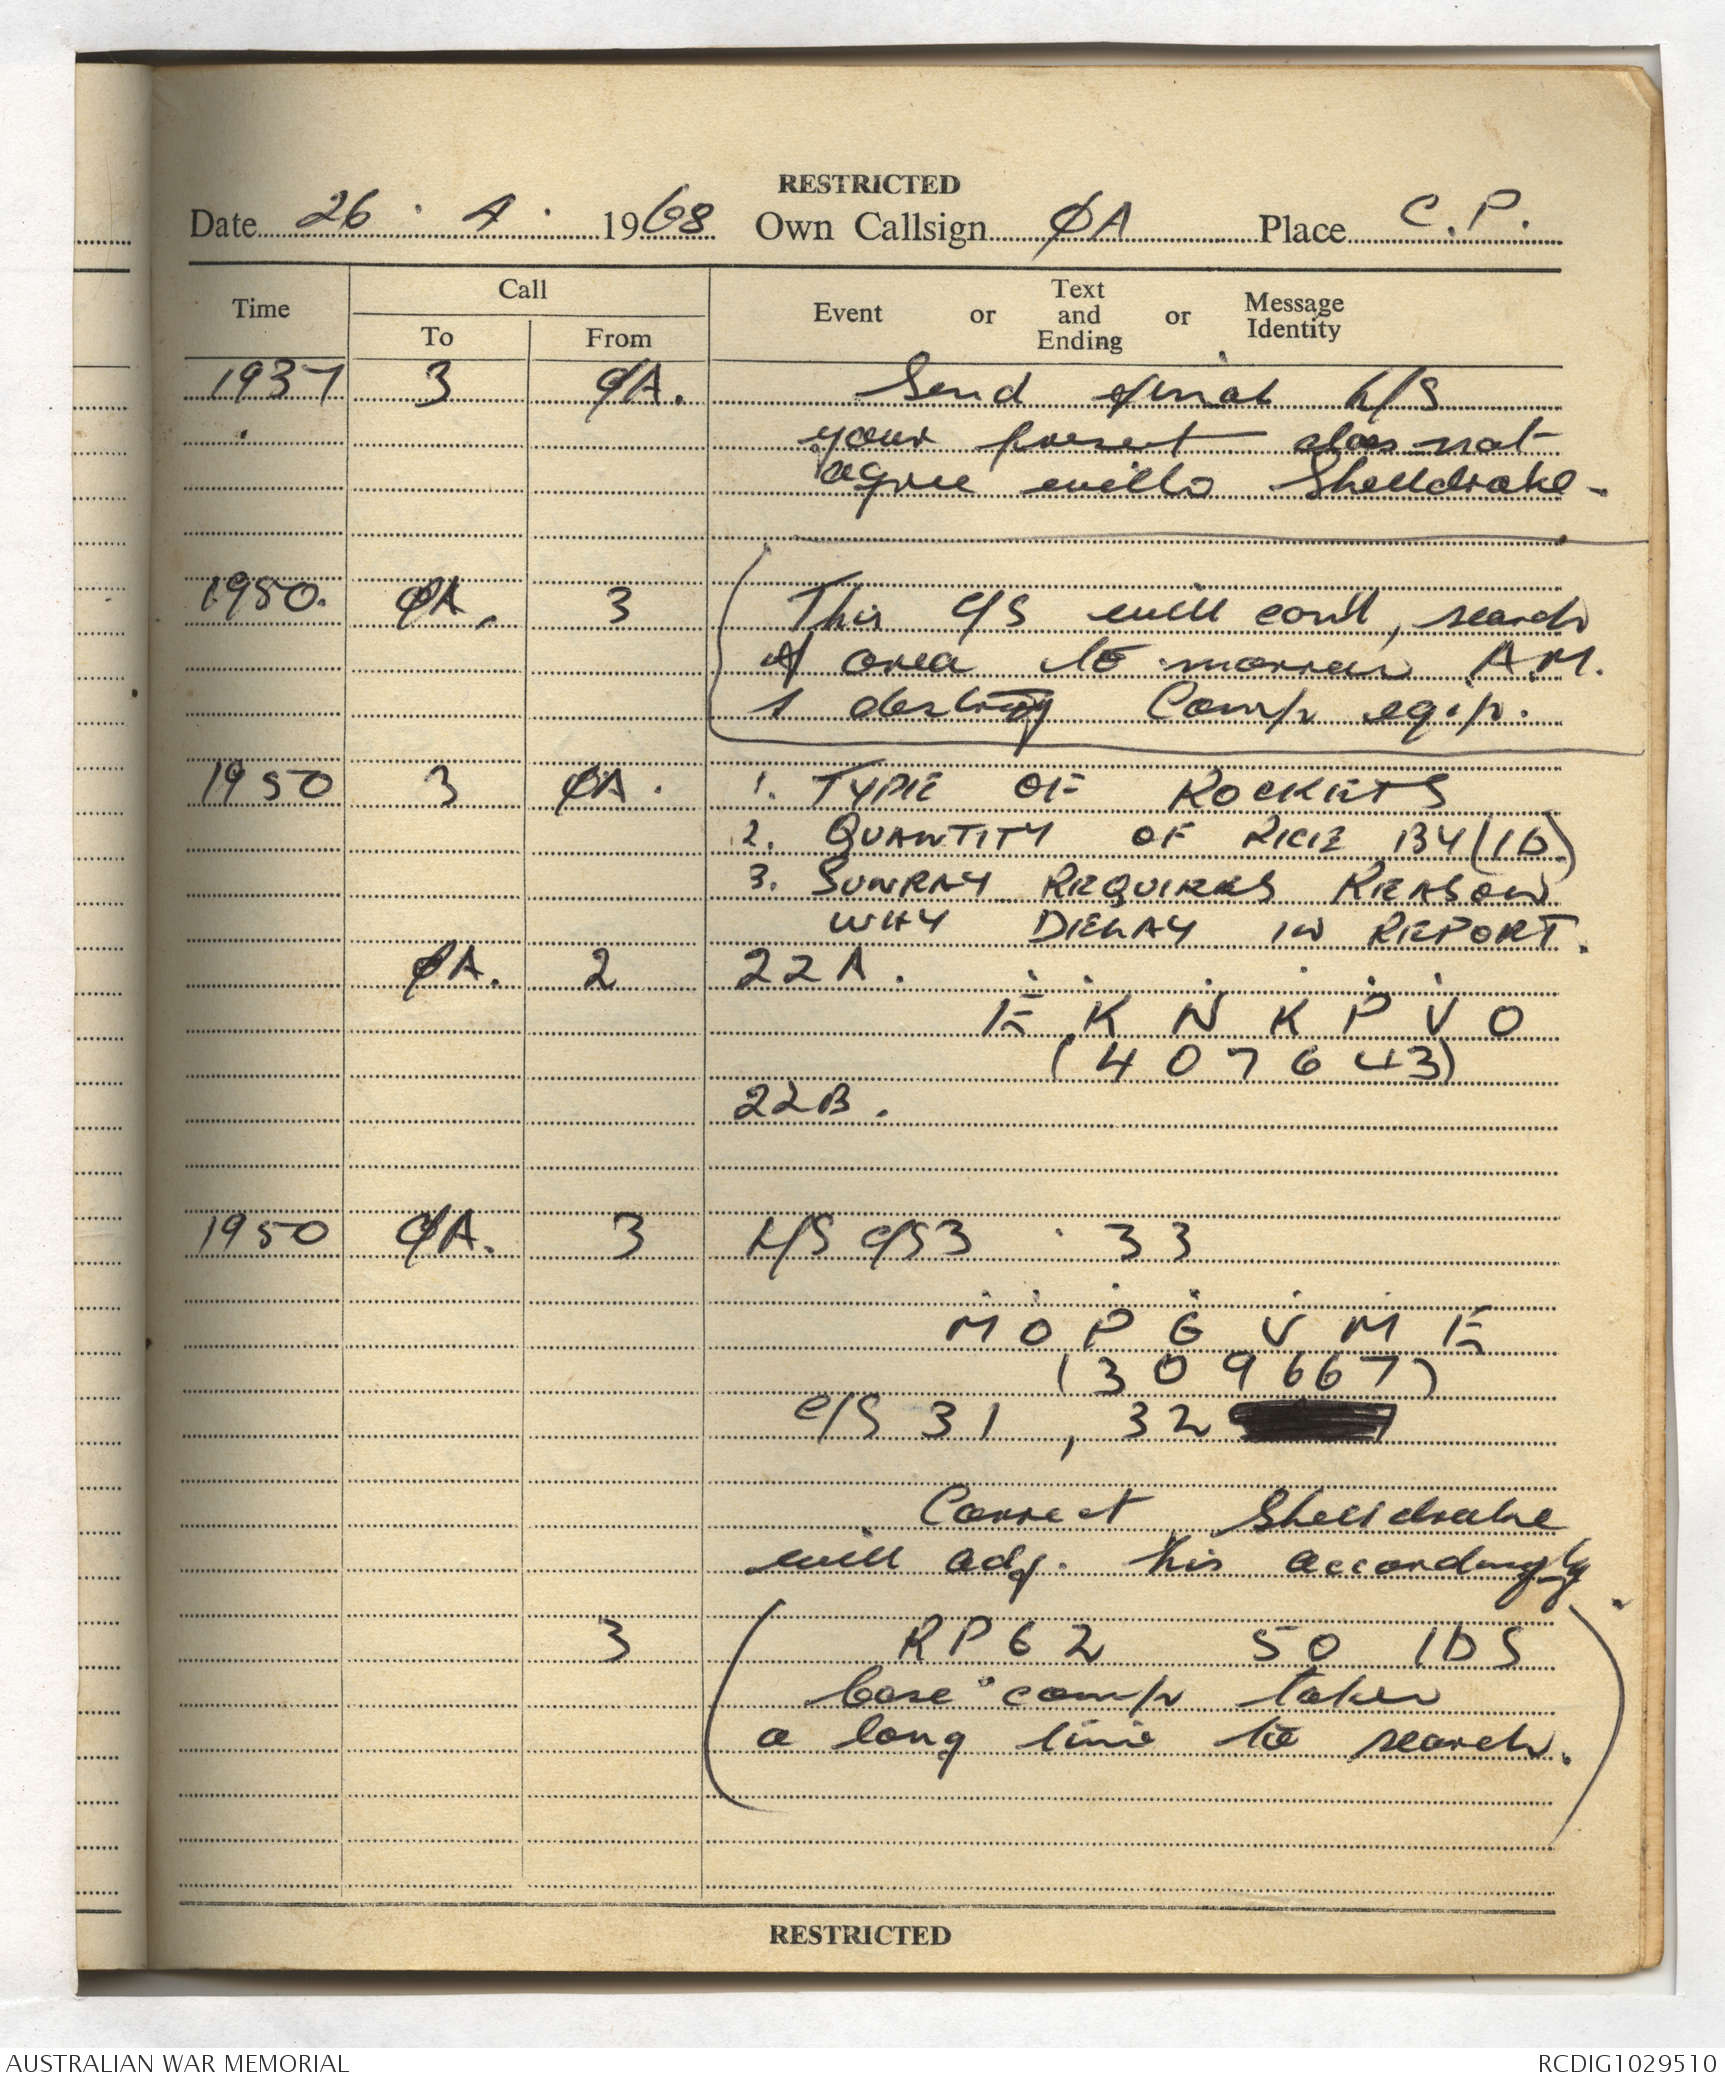 RESTRICTED
Date 26 . 4 . 1968 Own Callsign ØA Place C.P.
Time Call To From Event or Text and Ending or Message Identity
1937 3 ØA. Send final L/S
your present does not
agree with Shelldrake.
1950. ØA. 3 This C/S will cont, search
of area to-morrow A.M.
& destroy Comp eqip.
1950 3 ØA. 1. TYPE OF ROCKETS
2. QUANTITY OF RICE BY (1D)
3. SUNRAY REQUIRES REASON
WHY DELAY IN REPORT.
ØA. 2 22A.
E K N K P V O
(407643)
22B.
1950 ØA. 3 L/S C/S 3 . 33
M O P G V M E
(309667)
C/S 31 , 32
Correct Shelldrake
will adj. his accordingly.
3 RP62 50 1DS
base comp takes
a long time to search.
RESTRICTED
AUSTRALIAN WAR MEMORIAL
RCDIG1029510